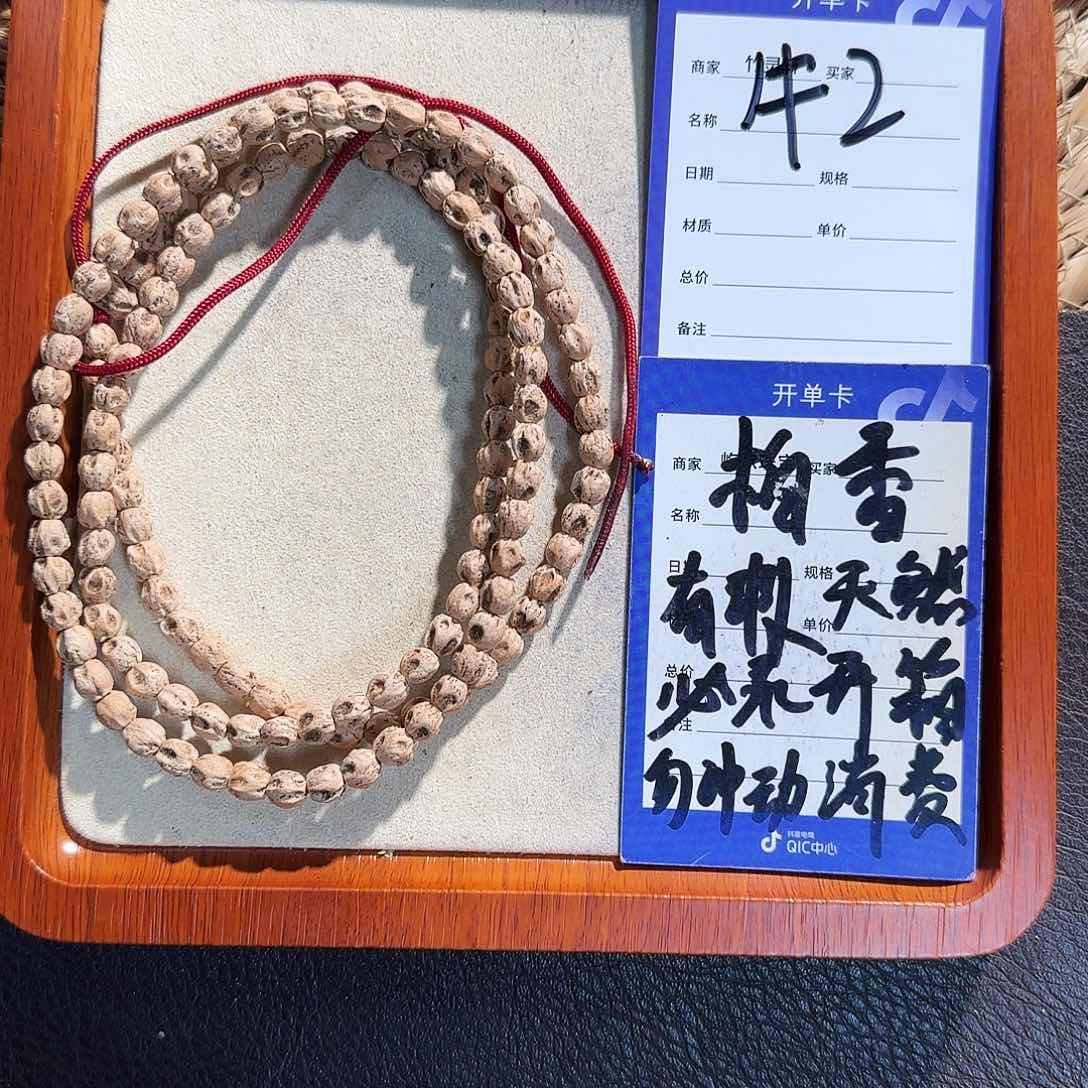 开单卡
商家 竹灵 买家
牛2
名称
日期 规格
材质 单价
总价
备注
开单卡
商家 买家
香
名称
有刺 天然
规格
单价
总价
必录开箱
注
勿冲动消费
抖音电商
QIC中心